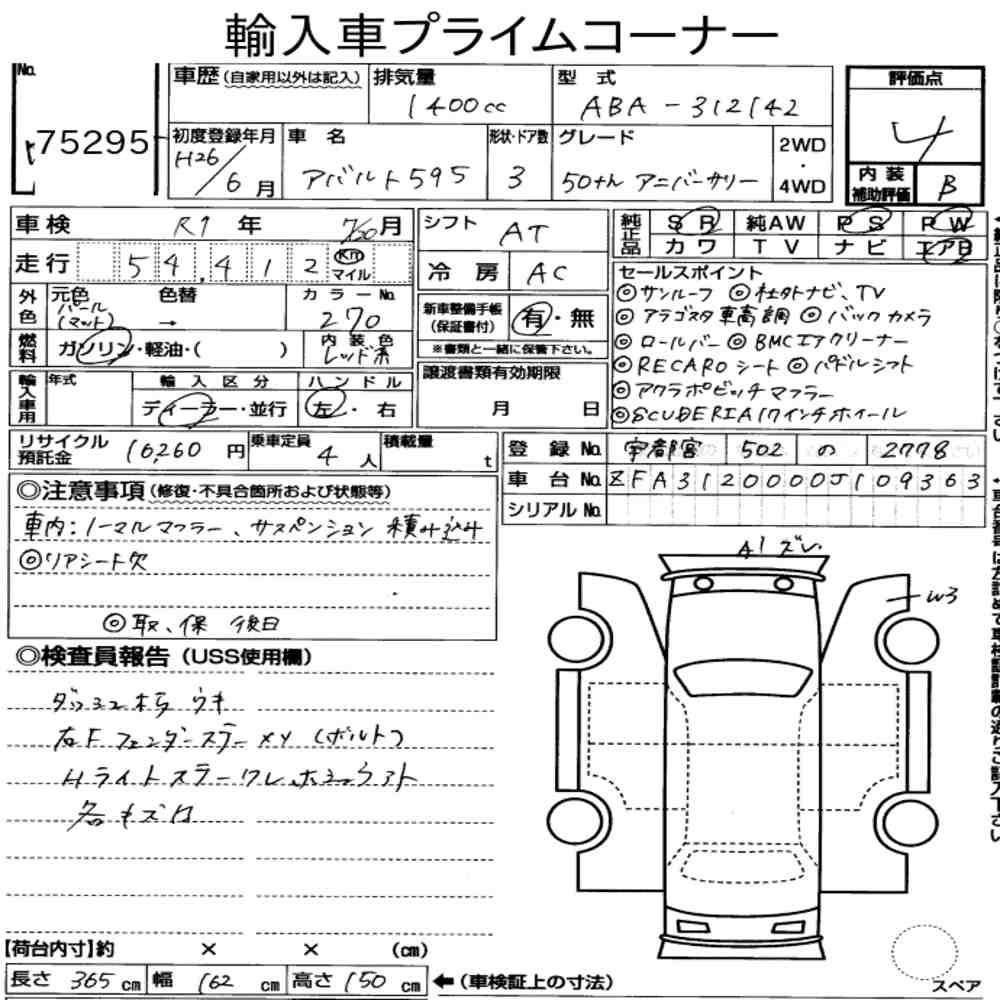 輸入車プライムコーナー
No.
75295
車歴(自家用以外は記入)
排気量
1400cc
型式
ABA-312142
評価点
4
初度登録年月
H26/6月
車名
アバルト595
形状・ドア数
3
グレード
50thアニバーサリー
2WD
・
4WD
内装
補助評価
B
車検
R1年 7/20月
走行
54,412
Km
マイル
シフト
AT
冷房
AC
純正品
SR 純AW PS PW
カワ TV ナビ エアB
セールスポイント
◎サンルーフ ◎社外ナビ、TV
◎アラゴスタ車高調 ◎バックカメラ
◎ロールバー ◎BMCエアクリーナー
◎RECAROシート ◎パドルシフト
◎アクラポビッチマフラー
◎SCUDERIA17インチホイール
外色
元色
パール
(マット)
色替
→
カラーNo.
270
燃料
ガソリン・軽油・( )
内装色
レッド系
新車整備手帳
(保証書付)
有・無
※書類と一緒に保管下さい。
輸入車用
年式
輸入区分
ディーラー・並行
ハンドル
左・右
譲渡書類有効期限
月 日
リサイクル
預託金
10,260円
乗車定員
4人
積載量
t
登録No.
宇都宮 502 の 2778
車台No.
ZFA3120000J109363
シリアルNo.
◎注意事項(修復・不具合箇所および状態等)
車内:ノーマルマフラー、サスペンション積み込み
◎リアシート欠
◎取、保 後日
◎検査員報告(USS使用欄)
ダッシュ板ウキ
右Fフェンダーステーメソ(ボルト)
Hライトステーワレ
各キズ凹
A1 ズレ
W3
【荷台内寸】約 × × (cm)
長さ 365cm 幅 162cm 高さ 150cm
←(車検証上の寸法)
スペア